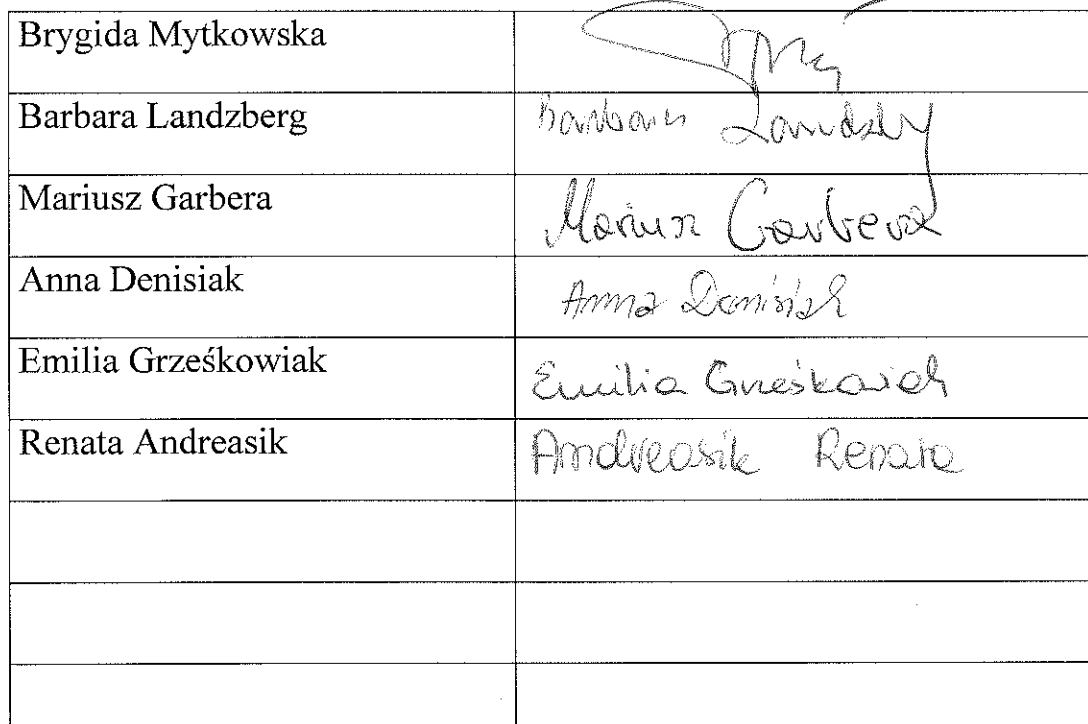 Brygida Mytkowska
Barbara Landzberg Barbara Landzberg
Mariusz Garbera Mariusz Garbera
Anna Denisiak Anna Denisiak
Emilia Grześkowiak Emilia Grześkowiak
Renata Andreasik Andreasik Renata